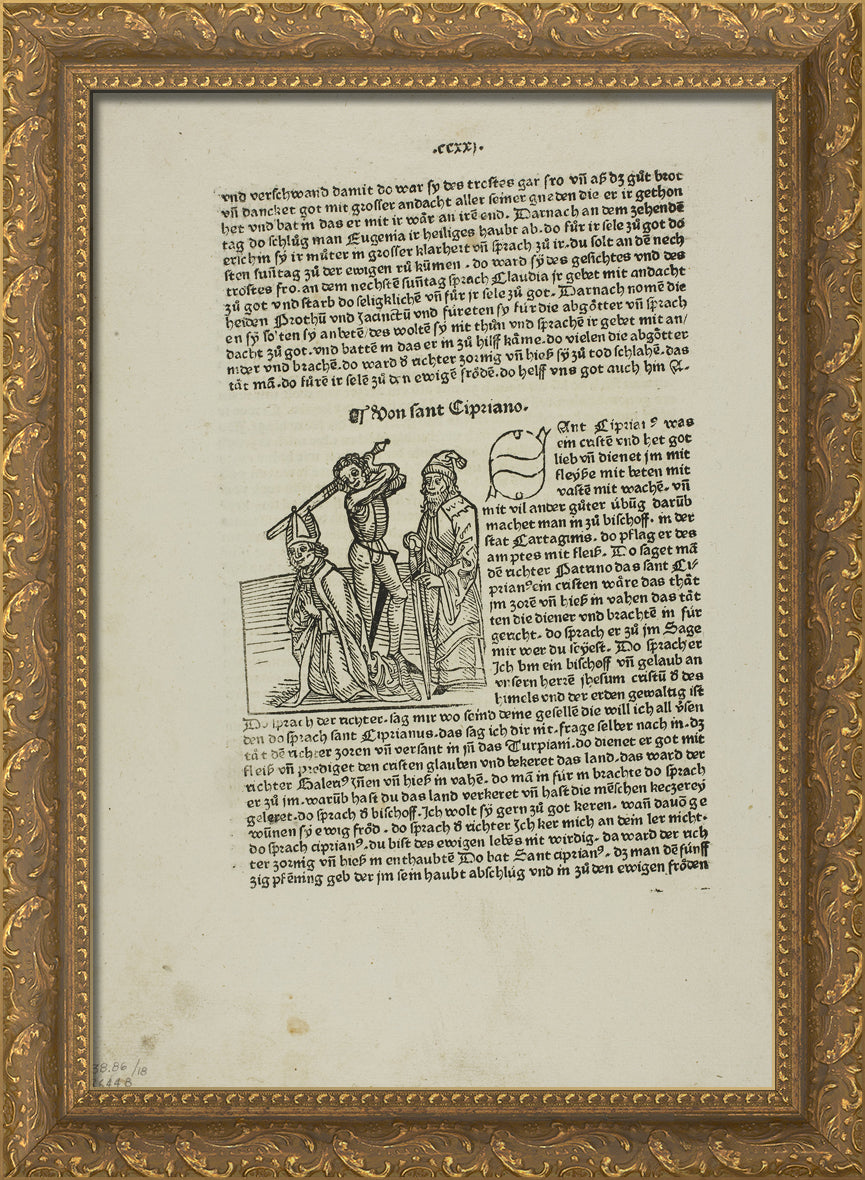 .ccxxj.
vnd verschwand damit do war sy des trostes gar fro vñ aß dz gůt brot
vñ dancket got mit grosser andacht aller seiner gneden die er ir gethon
het vnd bat in das er mit ir wår an irē end. Darnach an dem zehendē
tag do schlůg man Eugenia ir heiliges haubt ab. do fůr ir sele zů got do
erschin sy ir můter in grosser klarheit vñ sprach zů ir. du solt an dē nech
sten suñtag zů der ewigen rů kumen. do ward sy des gesichtes vnd des
trostes fro. an dem nechstē suñtag sprach Claudia jr gebet mit andacht
zů got vnd starb do seligklichē vñ fůr jr sele zů got. Darnach nomē die
heiden Prothū vnd Jacinctū vnd fůreten sy für die abgötter vñ sprach
en sy solten sy anbetē/des woltē sy nit thůn vnd sprachē ir gebet mit an/
dacht zů got. vnd battē in das er in zů hilff kåme. do vielen die abgötter
nider vnd brachē. do ward d richter zornig vñ hieß sy zů tod schlahē. das
tåt mā. do fůrē ir selē zů den ewigē frödē. do helff vns got auch hin A.
¶ Von sant Cipriano.
SAnt Ciprian⁹ was
ein cristē vnd het got
lieb vñ dienet jm mit
fleyße mit beten mit
vastē mit wachē. vñ
mit vil ander gůter übūg darūb
machet man in zů bischoff. in der
stat Cartaginis. do pflag er des
amptes mit fleiß. Do saget mā
dē richter Patrino das sant Ci⸗
prian⁹ ein cristen wåre das thåt
jm zorē vñ hieß in vahen das tåt
ten die diener vnd brachtē in für
gericht. do sprach er zů jm Sage
mir wer du seyest. Do sprach er
Ich bin ein bischoff vñ gelaub an
vnsern herrē jhesum cristū d des
himels vnd der erden gewaltig ist
Do sprach der richter. sag mir wo seind deine gesellē die will ich all vsen
den do sprach sant Ciprianus. das sag ich dir nit. frage selber nach in. dz
tåt dē richter zoren vñ versant in jn das Turpiani. do dienet er got mit
fleiß vñ prediget den cristen glauben vnd bekeret das land. das ward der
richter Galeri⁹ jnen vñ hieß in vahē. do mā in für in brachte do sprach
er zů jm. warūb hast du das land verkeret vñ hast die mēschen keczerey
geleret. do sprach d bischoff. Ich wolt sy gern zů got keren. wañ dauō ge
wūnen sy ewig fröd. do sprach d richter Ich ker mich an dein ler nicht.
do sprach ciprian⁹. du bist des ewigen lebēs nit wirdig. da ward der rich
ter zornig vñ hieß in enthaubtē Do bat Sant ciprian⁹. dz man dē fünff
zig pfēning geb der jm sein haubt abschlůg vnd in zů den ewigen fröden
38.86/18